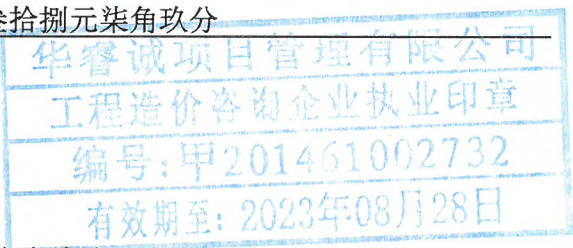 拾捌元柒角玖分
华睿诚项目管理有限公司
工程造价咨询企业执业印章
编号:甲201461002732
有效期至:2023年08月28日